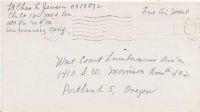 Lt Chas L Jensen 0919832
Co C 1st Med Bn
APO
San Francisco, Calif.
Free Air Mail
West Coast Lumbermens Ass'n
1410 S.W. Morrison Room 402
Portland 5, Oregon